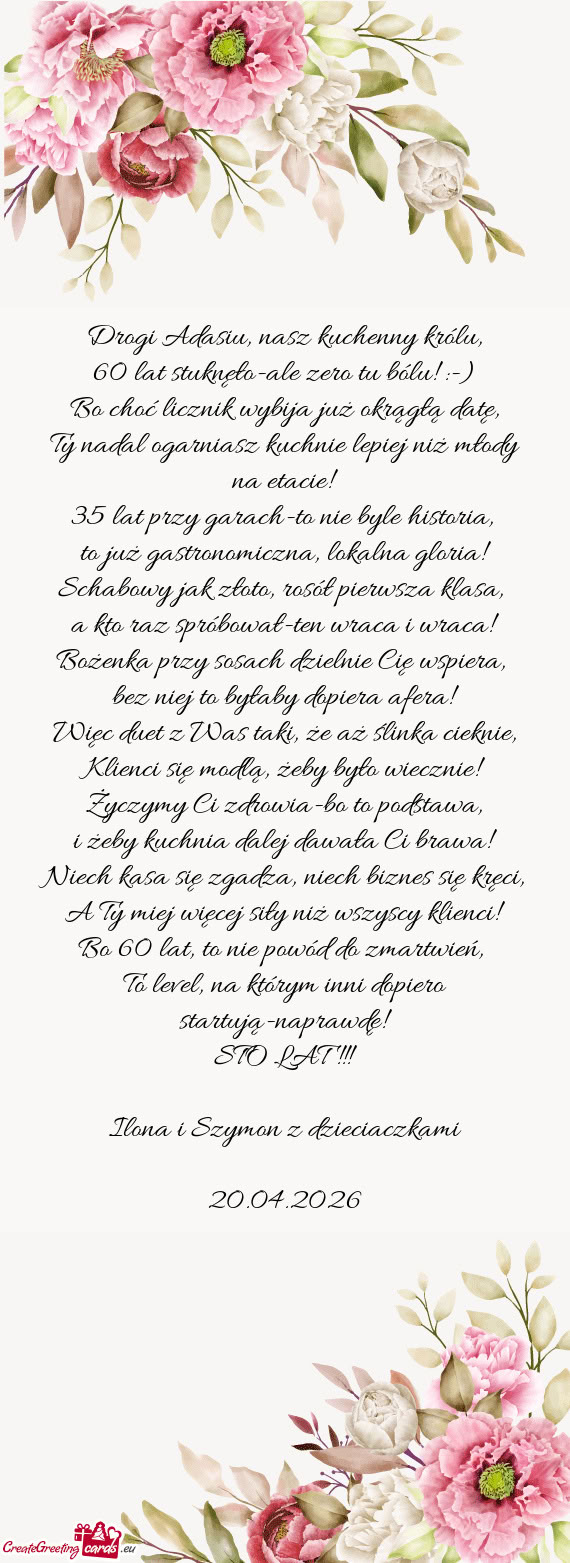 Drogi Adasiu, nasz kuchenny królu,
60 lat stuknęło-ale zero tu bólu! :-)
Bo choć licznik wybija już okrągłą datę,
Ty nadal ogarniasz kuchnie lepiej niż młody
na etacie!
35 lat przy garach-to nie byle historia,
to już gastronomiczna, lokalna gloria!
Schabowy jak złoto, rosół pierwsza klasa,
a kto raz spróbował-ten wraca i wraca!
Bożenka przy sosach dzielnie Cię wspiera,
bez niej to byłaby dopiera afera!
Więc duet z Was taki, że aż ślinka cieknie,
Klienci się modlą, żeby było wiecznie!
Życzymy Ci zdrowia-bo to podstawa,
i żeby kuchnia dalej dawała Ci brawa!
Niech kasa się zgadza, niech biznes się kręci,
A Ty miej więcej siły niż wszyscy klienci!
Bo 60 lat, to nie powód do zmartwień,
To level, na którym inni dopiero
startują-naprawdę!
STO LAT!!!
Ilona i Szymon z dzieciaczkami
20.04.2026
CreateGreeting cards .eu